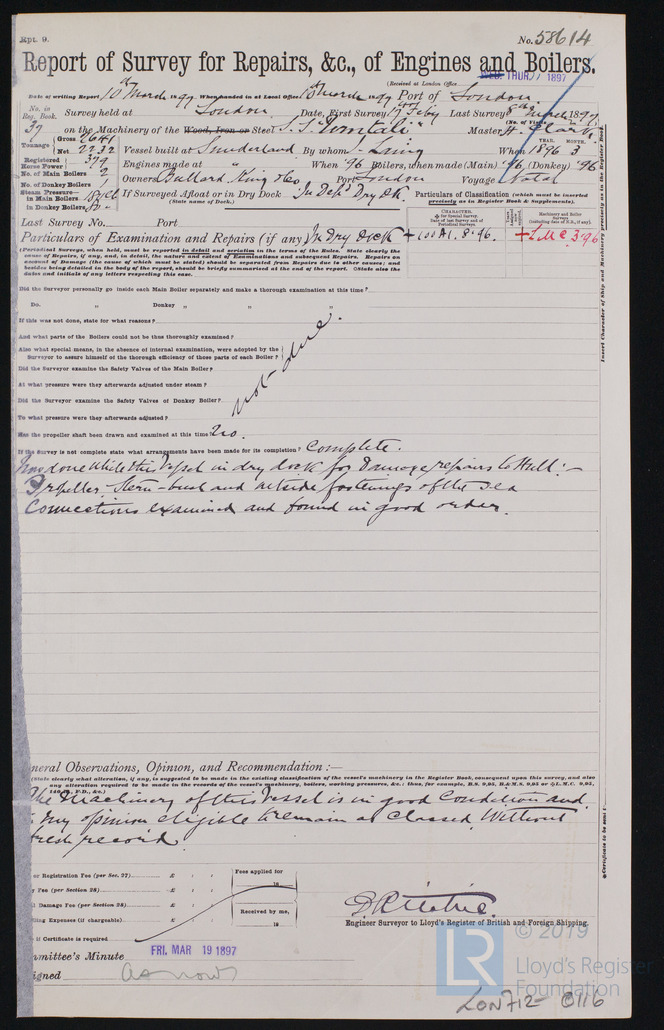 Rpt. 9.
No. 58614
Report of Survey for Repairs, &c., of Engines and Boilers.
(Received at London Office THUR. 1897
Date of writing Report 10th March 1897 When handed in at Local Office 10th March 1897 Port of London
No. in Reg. Book. 37 Survey held at London Date, First Survey Feby Last Survey 8th March 1897
(No. of Visits
on the Machinery of the Wood, Iron or Steel S.S. "Umtali" Master H. Clark
Tonnage Gross 2641 Net 2232 Vessel built at Sunderland By whom J. Laing When 1896 3
YEAR. MONTH.
Registered Horse Power 379 Engines made at " When '96 Boilers, when made (Main) '96 (Donkey) '96
No. of Main Boilers 2 Owners Bullard King & Co Port London Voyage Natal
No. of Donkey Boilers 1
Steam Pressure in Main Boilers If Surveyed Afloat or in Dry Dock In Dry Dk.
(State name of Dock.)
in Donkey Boilers
Particulars of Classification (which must be inserted precisely as in Register Book & Supplements).
Last Survey No. Port
CHARACTER. & for Special Survey. Date of last Survey and of Periodical Surveys.
Machinery and Boiler Surveys (including date of N.B., if any).
+100A1. 8.96.
+LMC. 3.96
Particulars of Examination and Repairs (if any) In Dry Dock
(Periodical Surveys, when held, must be reported in detail and seriatim in the terms of the Rules. State clearly the
cause of Repairs, if any, and, in detail, the nature and extent of Examinations and subsequent Repairs. Repairs on
account of Damage (the cause of which must be stated) should be separated from Repairs due to other causes; and
besides being detailed in the body of the report, should be briefly summarised at the end of the report. State also the
dates and initials of any letters respecting this case.
Did the Surveyor personally go inside each Main Boiler separately and make a thorough examination at this time?
Do. " Donkey " " "
If this was not done, state for what reasons?
And what parts of the Boilers could not be thus thoroughly examined?
Also what special means, in the absence of internal examination, were adopted by the
Surveyor to assure himself of the thorough efficiency of those parts of each Boiler?
Did the Surveyor examine the Safety Valves of the Main Boiler?
At what pressure were they afterwards adjusted under steam?
Did the Surveyor examine the Safety Valves of Donkey Boiler?
To what pressure were they afterwards adjusted?
not due.
Has the propeller shaft been drawn and examined at this time? No.
If the Survey is not complete state what arrangements have been made for its completion? Complete.
Now done while this Vessel in dry dock for Damage repairs to Hull:-
Propeller, Stern-bush and outside fastenings of the sea
Connections examined and found in good order.
Insert Character of Ship and Machinery precisely as in the Register Book.
General Observations, Opinion, and Recommendation:—
(State clearly what alteration, if any, is suggested to be made in the existing classification of the vessel's machinery in the Register Book, consequent upon this survey, and also
any alteration required to be made in the records of the vessel's machinery, boilers, working pressures, &c.: thus, for example, B.S. 9,95, B.&M.S. 9,95 or L.M.C. 9,95,
F.D., &c.)
The Machinery of this Vessel is in good Condition and
in my opinion eligible to remain as Classed, Without
fresh record.
or Registration Fee (per Sec. 27) £ : :
y Fee (per Section 28) £ : :
l Damage Fee (per Section 28) £ : :
lling Expenses (if chargeable) £ : :
Fees applied for
18
Received by me,
18
if Certificate is required
Engineer Surveyor to Lloyd's Register of British and Foreign Shipping.
Committee's Minute FRI. MAR 19 1897
igned as now
Certificate to be sent to
© 2019
LR
Lloyd's Register
Foundation
LON712-0116